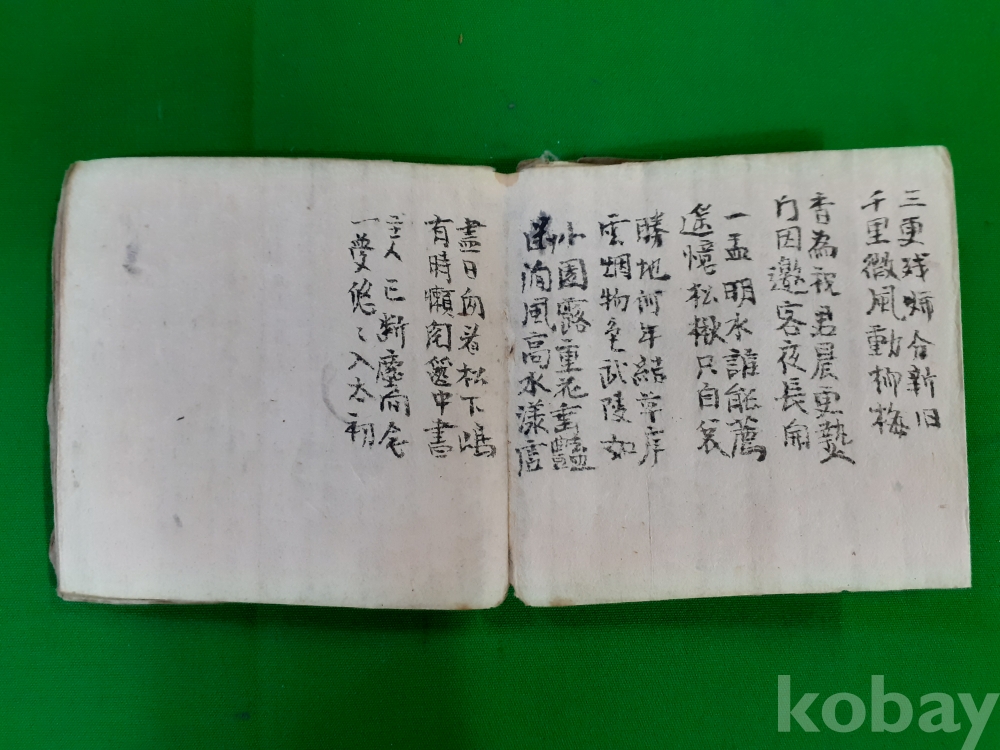 三更残婦合新旧
千里微風動柳梅
香為祝君晨更𤍠
门因邀客夜長開
一盂明水誰能薦
遥憶松楸只自哀
勝地何年結草庵
雲烟物色武陵如
小園露重花重豔
風高水漾
盡日角着松下塢
有時懶閱篋中書
主人已断塵向念
一夢悠〻入太初
kobay